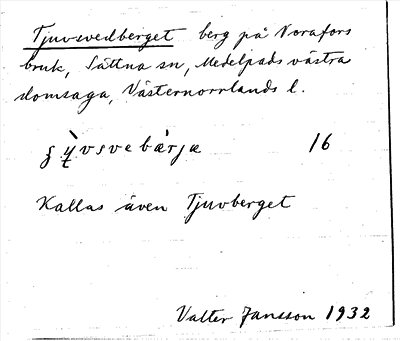 Tjuvsvedberget berg på Norafors
bruk, Sättna sn, Medelpads västra
domsaga, Västernorrlands l.
ʂỳvsvebärjæ 16
Kallas även Tjuvberget
Valter Jansson 1932